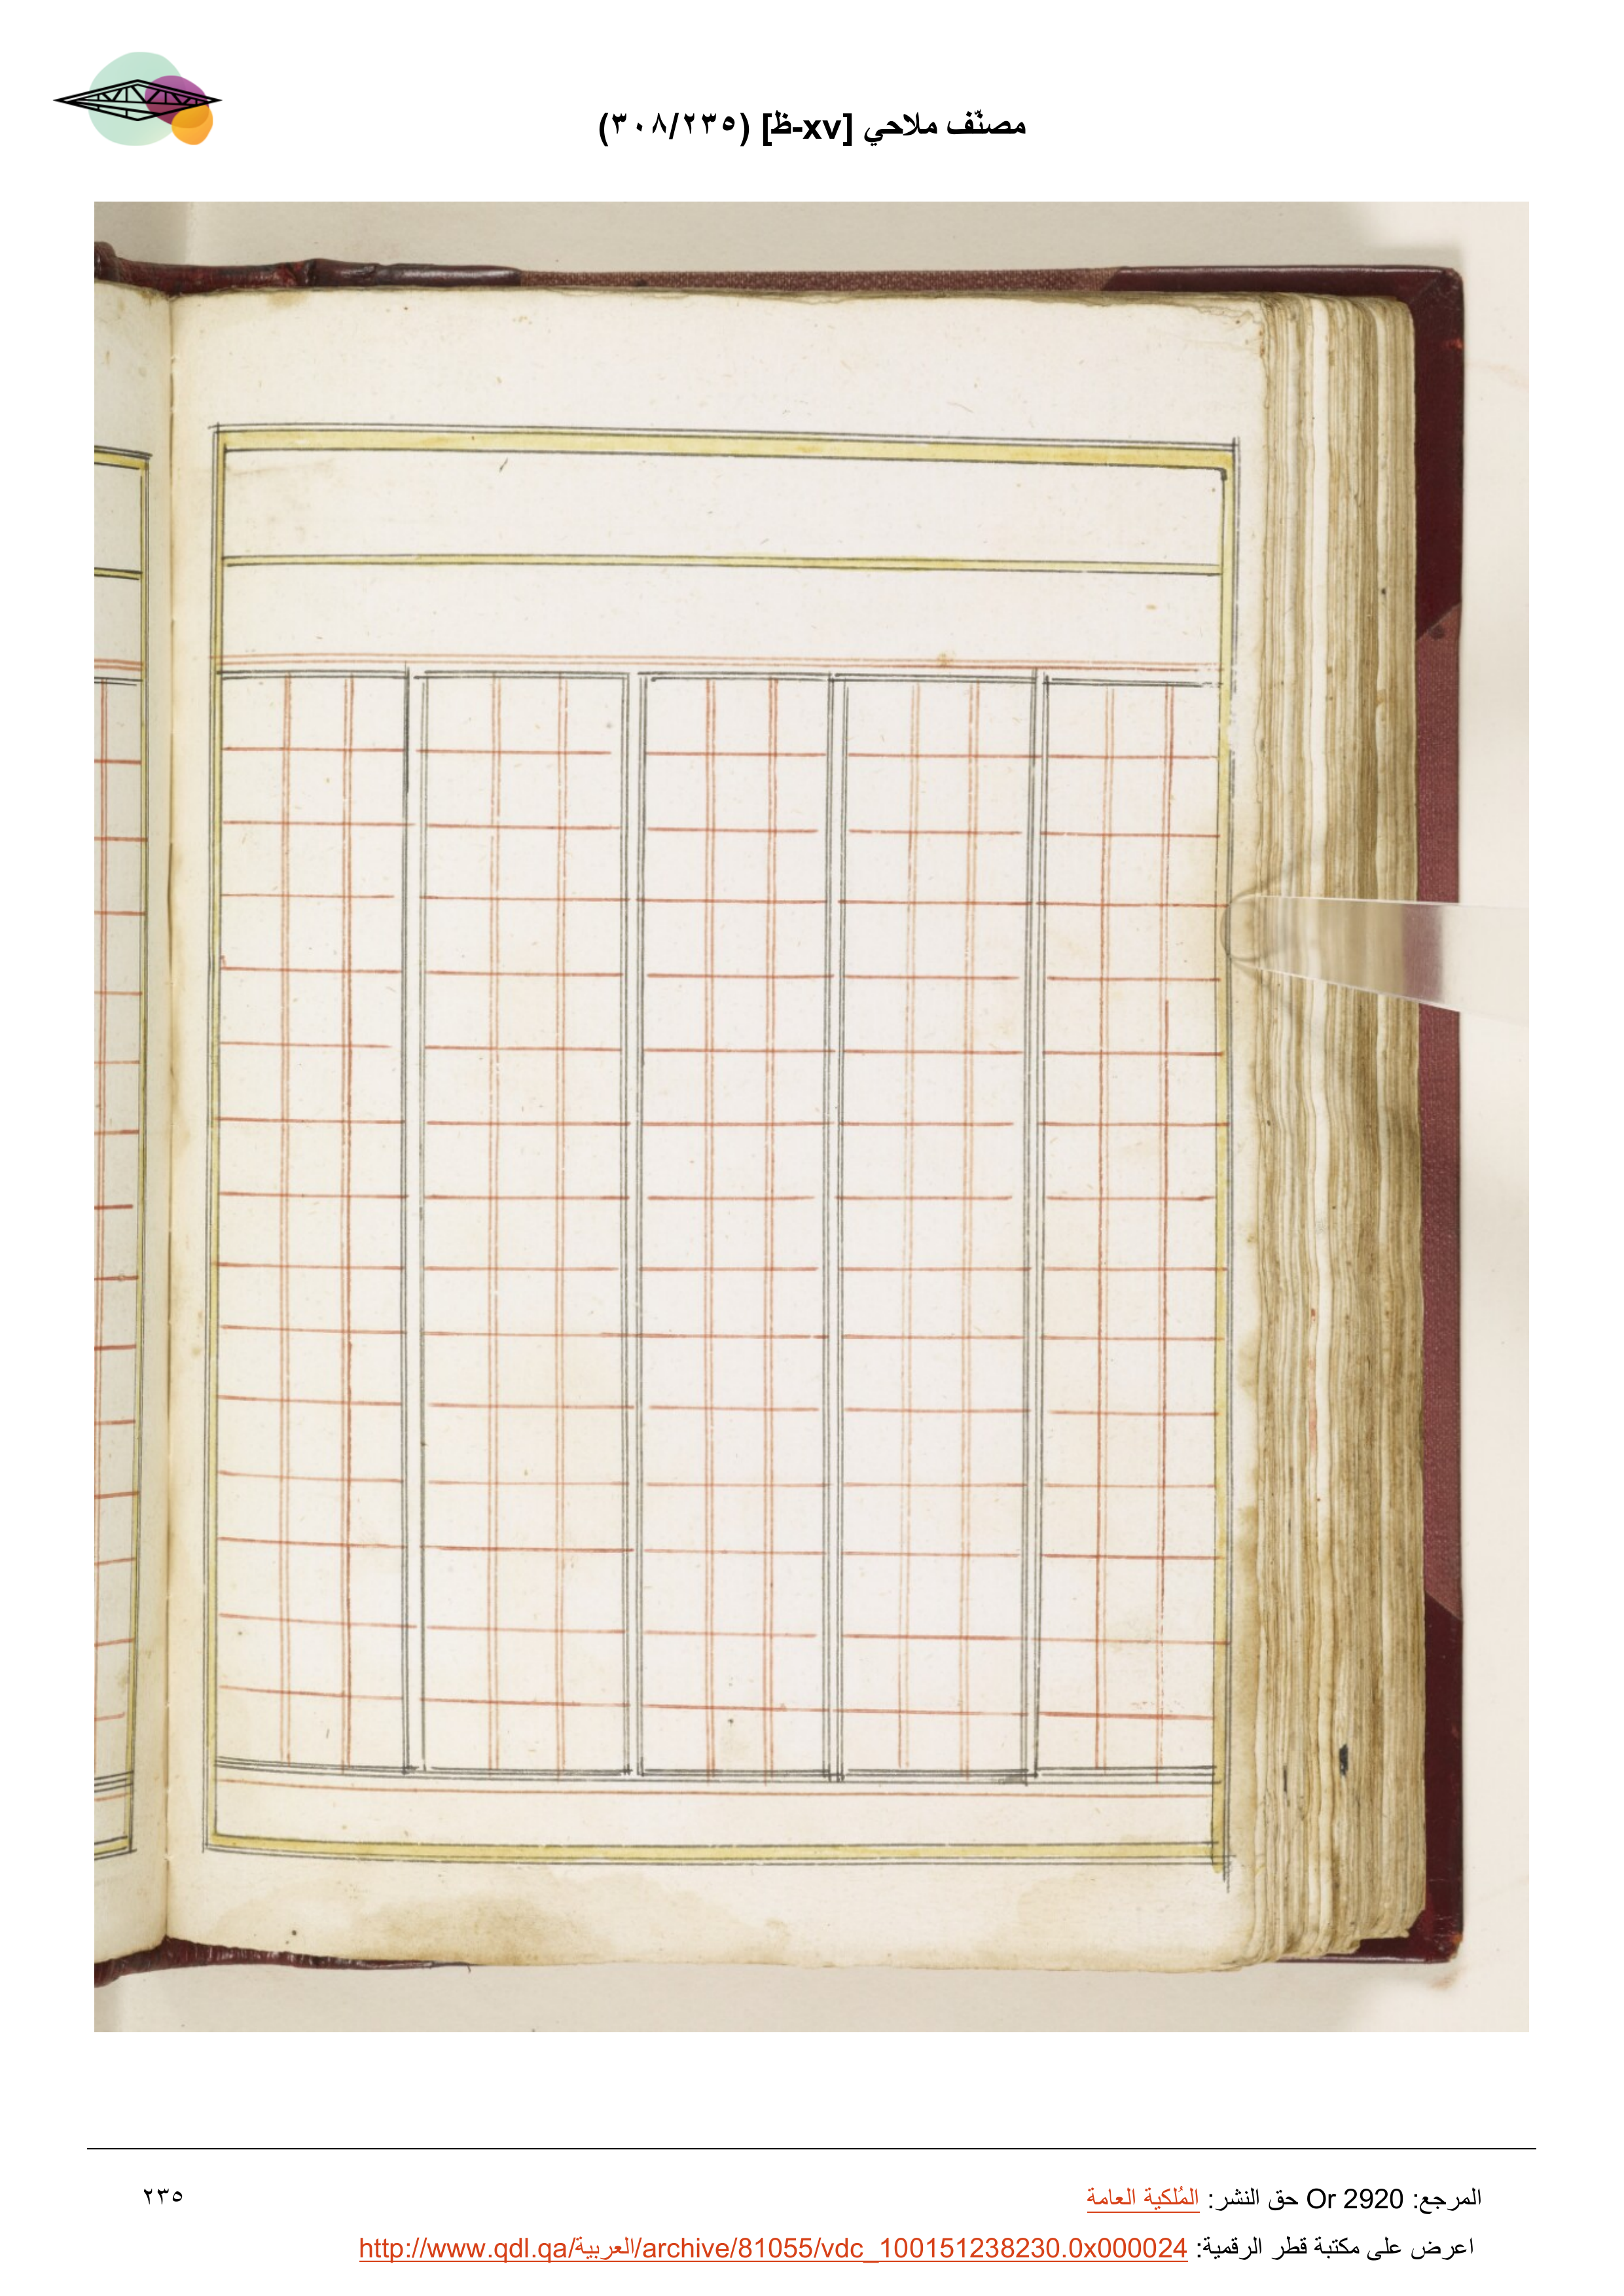 مصنّف ملاحي [xv-ظ] (٣٠٨/٢٣٥)
المرجع: Or 2920 حق النشر: المُلكية العامة
٢٣٥
اعرض على مكتبة قطر الرقمية: http://www.qdl.qa/العربية/archive/81055/vdc_100151238230.0x000024